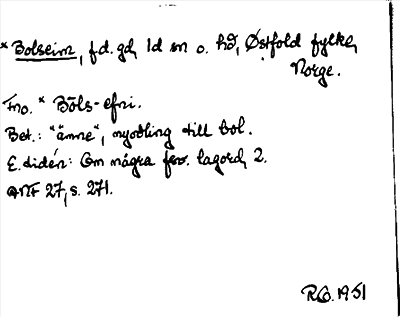 * Bolseim, f.d. gd, Id sn o. hd, Østfold fylke,
Norge.
Fno. * Bōls-efni.
Bet.: "ämne", nyodling till bol.
E. Lidén: Om några fsv. lagord, 2.
ANF 27, s. 271.
1951